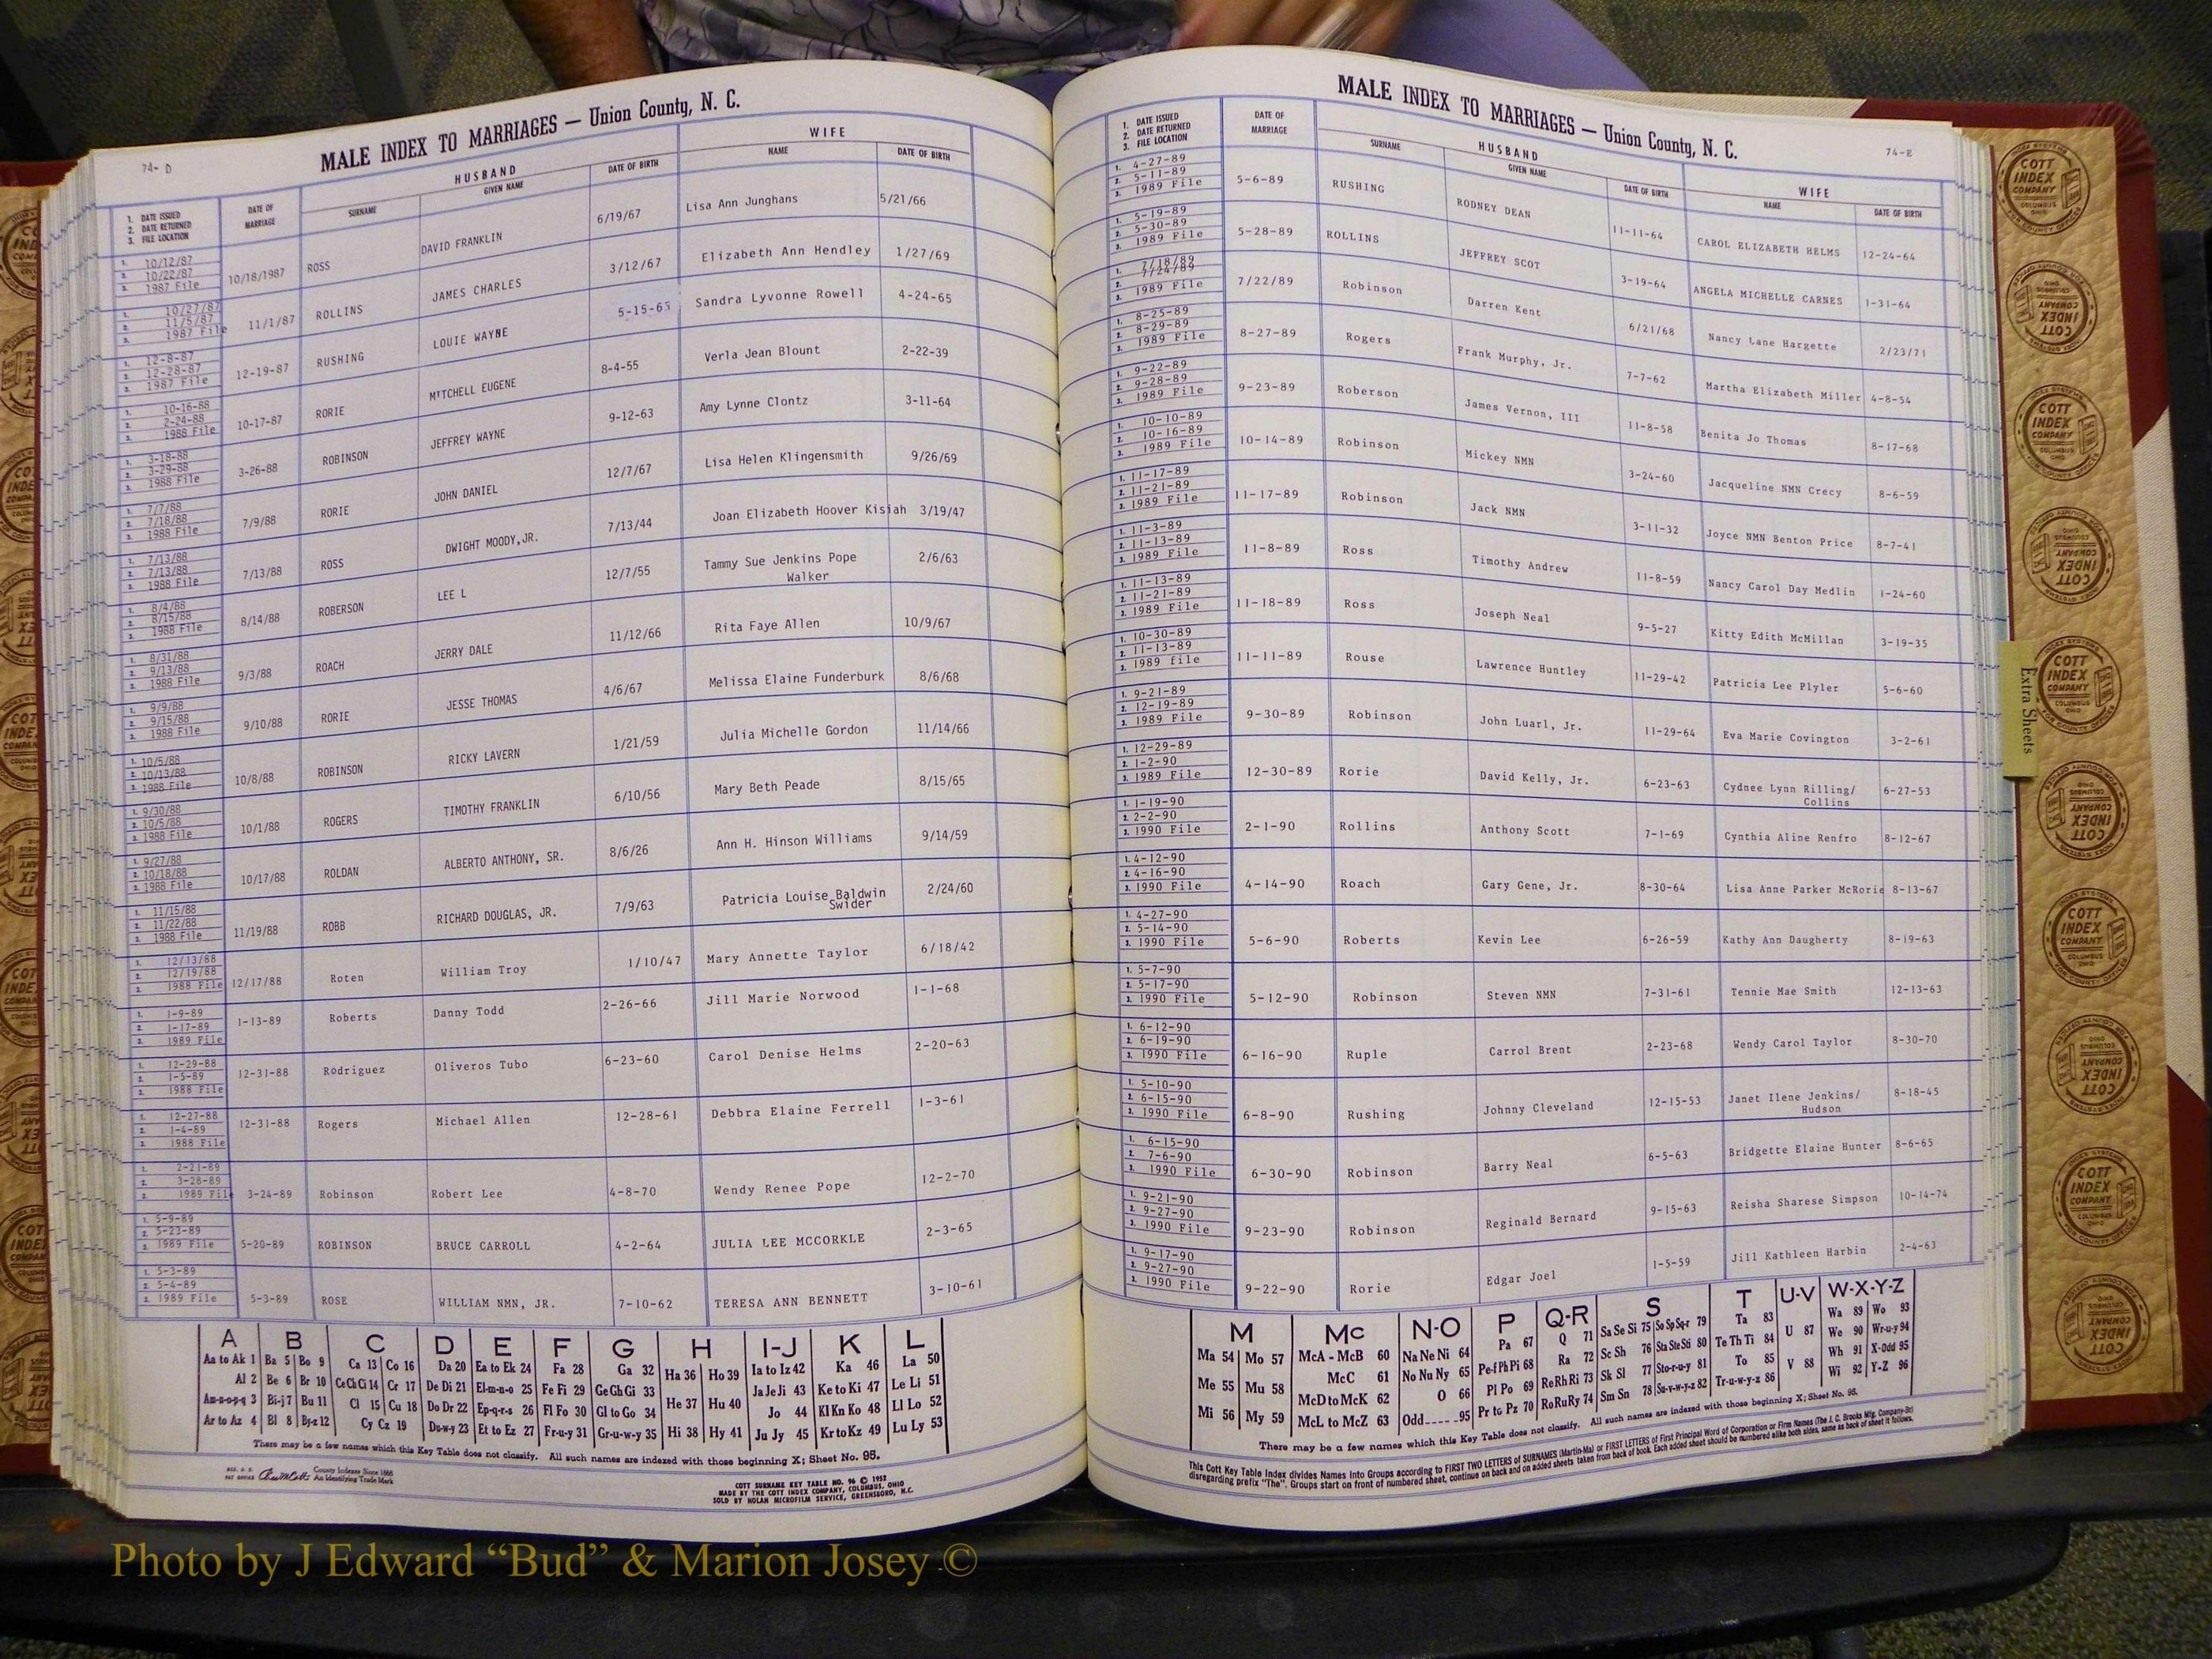 74- D
MALE INDEX TO MARRIAGES — Union County, N. C.
1. DATE ISSUED 2. DATE RETURNED 3. FILE LOCATION
DATE OF MARRIAGE
HUSBAND
SURNAME GIVEN NAME DATE OF BIRTH
WIFE
NAME DATE OF BIRTH
1. 10/12/87 2. 10/22/87 3. 1987 File 10/18/1987 ROSS DAVID FRANKLIN 6/19/67 Lisa Ann Junghans 5/21/66
1. 10/27/87 2. 11/5/87 3. 1987 File 11/1/87 ROLLINS JAMES CHARLES 3/12/67 Elizabeth Ann Hendley 1/27/69
1. 12-8-87 2. 12-28-87 3. 1987 File 12-19-87 RUSHING LOUIE WAYNE 5-15-65 Sandra Lyvonne Rowell 4-24-65
1. 10-16-88 2. 2-24-88 3. 1988 File 10-17-87 RORIE MITCHELL EUGENE 8-4-55 Verla Jean Blount 2-22-39
1. 3-18-88 2. 3-29-88 3. 1988 File 3-26-88 ROBINSON JEFFREY WAYNE 9-12-63 Amy Lynne Clontz 3-11-64
1. 7/7/88 2. 7/18/88 3. 1988 File 7/9/88 RORIE JOHN DANIEL 12/7/67 Lisa Helen Klingensmith 9/26/69
1. 7/13/88 2. 7/13/88 3. 1988 File 7/13/88 ROSS DWIGHT MOODY,JR. 7/13/44 Joan Elizabeth Hoover Kisiah 3/19/47
1. 8/4/88 2. 8/15/88 3. 1988 File 8/14/88 ROBERSON LEE L 12/7/55 Tammy Sue Jenkins Pope Walker 2/6/63
1. 8/31/88 2. 9/13/88 3. 1988 File 9/3/88 ROACH JERRY DALE 11/12/66 Rita Faye Allen 10/9/67
1. 9/9/88 2. 9/15/88 3. 1988 File 9/10/88 RORIE JESSE THOMAS 4/6/67 Melissa Elaine Funderburk 8/6/68
1. 10/5/88 2. 10/13/88 3. 1988 File 10/8/88 ROBINSON RICKY LAVERN 1/21/59 Julia Michelle Gordon 11/14/66
1. 9/30/88 2. 10/5/88 3. 1988 File 10/1/88 ROGERS TIMOTHY FRANKLIN 6/10/56 Mary Beth Peade 8/15/65
1. 9/27/88 2. 10/18/88 3. 1988 File 10/17/88 ROLDAN ALBERTO ANTHONY, SR. 8/6/26 Ann H. Hinson Williams 9/14/59
1. 11/15/88 2. 11/22/88 3. 1988 File 11/19/88 ROBB RICHARD DOUGLAS, JR. 7/9/63 Patricia Louise Baldwin Swider 2/24/60
1. 12/13/88 2. 12/19/88 3. 1988 File 12/17/88 Roten William Troy 1/10/47 Mary Annette Taylor 6/18/42
1. 1-9-89 2. 1-17-89 3. 1989 File 1-13-89 Roberts Danny Todd 2-26-66 Jill Marie Norwood 1-1-68
1. 12-29-88 2. 1-5-89 3. 1988 File 12-31-88 Rodriguez Oliveros Tubo 6-23-60 Carol Denise Helms 2-20-63
1. 12-27-88 2. 1-4-89 3. 1988 File 12-31-88 Rogers Michael Allen 12-28-61 Debbra Elaine Ferrell 1-3-61
1. 2-21-89 2. 3-28-89 3. 1989 File 3-24-89 Robinson Robert Lee 4-8-70 Wendy Renee Pope 12-2-70
1. 5-9-89 2. 5-23-89 3. 1989 File 5-20-89 ROBINSON BRUCE CARROLL 4-2-64 JULIA LEE MCCORKLE 2-3-65
1. 5-3-89 2. 5-4-89 3. 1989 File 5-3-89 ROSE WILLIAM NMN, JR. 7-10-62 TERESA ANN BENNETT 3-10-61
A B C D E F G H I-J K L
Aa to Ak 1 Ba 5 Bo 9 Ca 13 Co 16 Da 20 Ea to Ek 24 Fa 28 Ga 32 Ha 36 Ho 39 Ia to Iz 42 Ka 46 La 50
Al 2 Be 6 Br 10 Ce Ch Ci 14 Cr 17 De Di 21 El-m-n-o 25 Fe Fi 29 Ge Gh Gi 33 He 37 Hu 40 Ja Je Ji 43 Ke to Ki 47 Le Li 51
Am-n-o-p-q 3 Bi-j 7 Bu 11 Cl 15 Cu 18 Do Dr 22 Ep-q-r-s 26 Fl Fo 30 Gl to Go 34 Hi 38 Hy 41 Jo 44 Kl Kn Ko 48 Ll Lo 52
Ar to Az 4 Bl 8 By-z 12 Cy Cz 19 Du-w-y 23 Et to Ez 27 Fr-u-y 31 Gr-u-w-y 35 Ju Jy 45 Kr to Kz 49 Lu Ly 53
There may be a few names which this Key Table does not classify. All such names are indexed with those beginning X; Sheet No. 95.
County Indexes Since 1888
An Identifying Trade Mark
COTT SURNAME KEY TABLE NO. 96 © 1952
MADE BY THE COTT INDEX COMPANY, COLUMBUS, OHIO
SOLD BY NOLAN MICROFILM SERVICE, GREENSBORO, N.C.
MALE INDEX TO MARRIAGES — Union County, N. C.
74-E
1. DATE ISSUED 2. DATE RETURNED 3. FILE LOCATION
DATE OF MARRIAGE
HUSBAND
SURNAME GIVEN NAME DATE OF BIRTH
WIFE
NAME DATE OF BIRTH
1. 4-27-89 2. 5-11-89 3. 1989 File 5-6-89 RUSHING RODNEY DEAN 11-11-64 CAROL ELIZABETH HELMS 12-24-64
1. 5-19-89 2. 5-30-89 3. 1989 File 5-28-89 ROLLINS JEFFREY SCOT 3-19-64 ANGELA MICHELLE CARNES 1-31-64
1. 7/18/89 7/24/89 3. 1989 File 7/22/89 Robinson Darren Kent 6/21/68 Nancy Lane Hargette 2/23/71
1. 8-25-89 2. 8-29-89 3. 1989 File 8-27-89 Rogers Frank Murphy, Jr. 7-7-62 Martha Elizabeth Miller 4-8-54
1. 9-22-89 2. 9-28-89 3. 1989 File 9-23-89 Roberson James Vernon, III 11-8-58 Benita Jo Thomas 8-17-68
1. 10-10-89 2. 10-16-89 3. 1989 File 10-14-89 Robinson Mickey NMN 3-24-60 Jacqueline NMN Crecy 8-6-59
1. 11-17-89 2. 11-21-89 3. 1989 File 11-17-89 Robinson Jack NMN 3-11-32 Joyce NMN Benton Price 8-7-41
1. 11-3-89 2. 11-13-89 3. 1989 File 11-8-89 Ross Timothy Andrew 11-8-59 Nancy Carol Day Medlin 1-24-60
1. 11-13-89 2. 11-21-89 3. 1989 File 11-18-89 Ross Joseph Neal 9-5-27 Kitty Edith McMillan 3-19-35
1. 10-30-89 2. 11-13-89 3. 1989 file 11-11-89 Rouse Lawrence Huntley 11-29-42 Patricia Lee Plyler 5-6-60
1. 9-21-89 2. 12-19-89 3. 1989 File 9-30-89 Robinson John Luarl, Jr. 11-29-64 Eva Marie Covington 3-2-61
1. 12-29-89 2. 1-2-90 3. 1989 File 12-30-89 Rorie David Kelly, Jr. 6-23-63 Cydnee Lynn Rilling/ Collins 6-27-53
1. 1-19-90 2. 2-2-90 3. 1990 File 2-1-90 Rollins Anthony Scott 7-1-69 Cynthia Aline Renfro 8-12-67
1. 4-12-90 2. 4-16-90 3. 1990 File 4-14-90 Roach Gary Gene, Jr. 8-30-64 Lisa Anne Parker McRorie 8-13-67
1. 4-27-90 2. 5-14-90 3. 1990 File 5-6-90 Roberts Kevin Lee 6-26-59 Kathy Ann Daugherty 8-19-63
1. 5-7-90 2. 5-17-90 3. 1990 File 5-12-90 Robinson Steven NMN 7-31-61 Tennie Mae Smith 12-13-63
1. 6-12-90 2. 6-19-90 3. 1990 File 6-16-90 Ruple Carrol Brent 2-23-68 Wendy Carol Taylor 8-30-70
1. 5-10-90 2. 6-15-90 3. 1990 File 6-8-90 Rushing Johnny Cleveland 12-15-53 Janet Ilene Jenkins/ Hudson 8-18-45
1. 6-15-90 2. 7-6-90 3. 1990 File 6-30-90 Robinson Barry Neal 6-5-63 Bridgette Elaine Hunter 8-6-65
1. 9-21-90 2. 9-27-90 3. 1990 File 9-23-90 Robinson Reginald Bernard 9-15-63 Reisha Sharese Simpson 10-14-74
1. 9-17-90 2. 9-27-90 3. 1990 File 9-22-90 Rorie Edgar Joel 1-5-59 Jill Kathleen Harbin 2-4-63
M Mc N-O P Q-R S T U-V W-X-Y-Z
Ma 54 Mo 57 McA - McB 60 Na Ne Ni 64 Pa 67 Q 71 Sa Se Si 75 So Sp Sq-r 79 Ta 83 U 87 Wa 89 Wo 93
Me 55 Mu 58 McC 61 No Nu Ny 65 Pe-f Ph Pi 68 Ra 72 Sc Sh 76 Sta Ste Sti 80 Te Th Ti 84 V 88 We 90 Wr-u-y 94
Mi 56 My 59 McD to McK 62 O 66 Pl Po 69 Re Rh Ri 73 Sk Sl 77 Sto-r-u-y 81 To 85 Wh 91 X-Odd 95
McL to McZ 63 Odd 95 Pr to Pz 70 Ro Ru Ry 74 Sm Sn 78 Su-v-w-y-z 82 Tr-u-w-y-z 86 Wi 92 Y-Z 96
There may be a few names which this Key Table does not classify. All such names are indexed with those beginning X; Sheet No. 95.
This Cott Key Table Index divides Names Into Groups according to FIRST TWO LETTERS of SURNAMES (Martin-Ma) or FIRST LETTERS of First Principal Word of Corporation or Firm Names (The J. C. Brooks Mfg. Company-Br)
disregarding prefix "The". Groups start on front of numbered sheet, continue on back and on added sheets taken from back of book. Each added sheet should be numbered alike both sides, same as back of sheet it follows.
Extra Sheets
COTT INDEX COMPANY COLUMBUS OHIO
Photo by J Edward “Bud” & Marion Josey ©